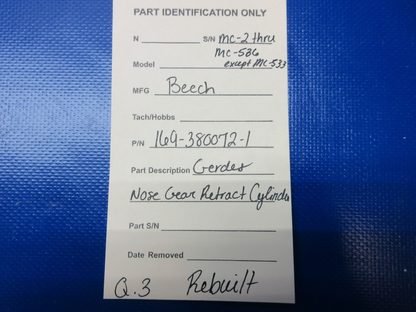 PART IDENTIFICATION ONLY
N S/N MC-2 thru
MC-536
Model except MC-533
MFG Beech
Tach/Hobbs:
P/N 169-380072-1
Part Description Gerdes
Nose Gear Retract Cylinder
Part S/N
Date Removed
Q.3 Rebuilt